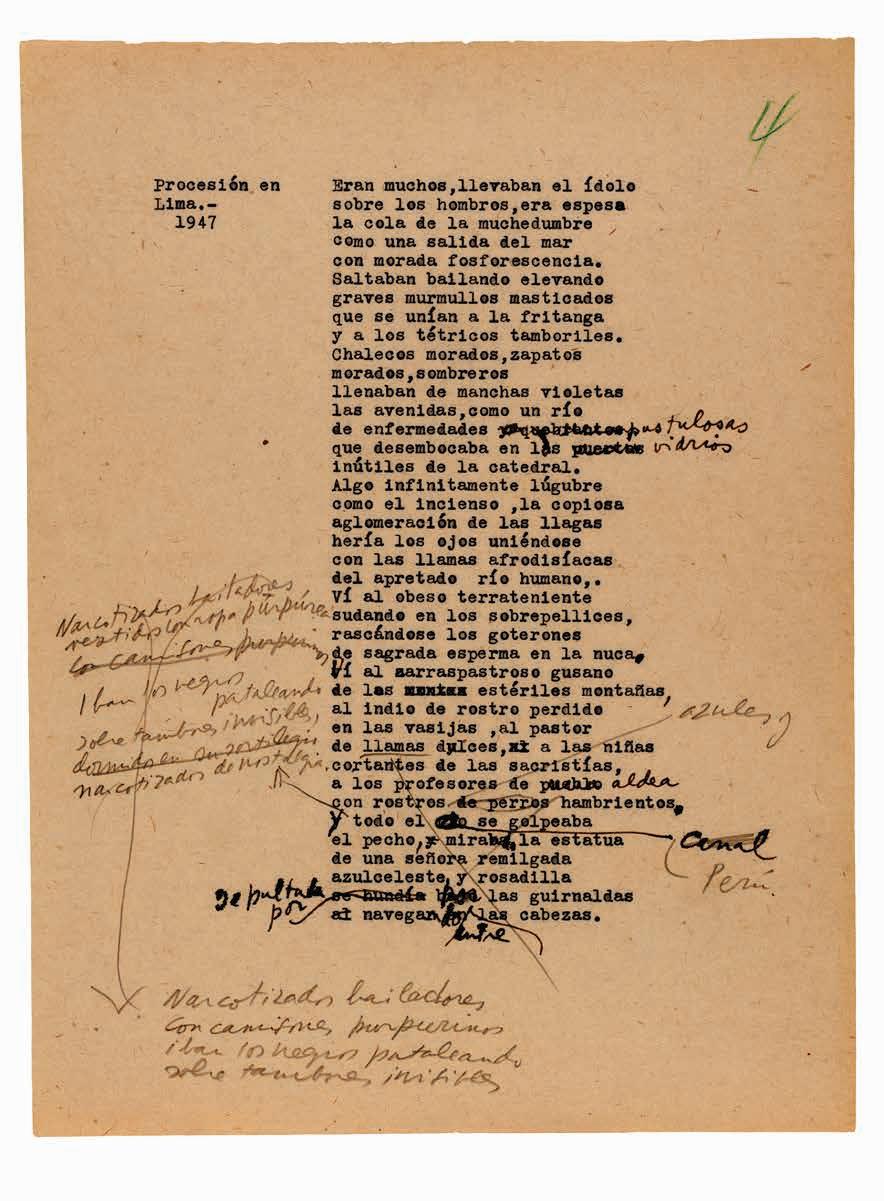 4
Procesión en
Lima.-
1947
Eran muchos,llevaban el ídolo
sobre los hombros,era espesa
la cola de la muchedumbre
como una salida del mar
con morada fosforescencia.
Saltaban bailando elevando
graves murmullos masticados
que se unían a la fritanga
y a los tétricos tamboriles.
Chalecos morados,zapatos
morados,sombreros
llenaban de manchas violetas
las avenidas,como un río
de enfermedades pustulosas
que desembocaba en los vidrios
inútiles de la catedral.
Algo infinitamente lúgubre
como el incienso ,la copiosa
aglomeración de las llagas
hería los ojos uniéndose
con las llamas afrodisíacas
del apretado río humano,.
Ví al obeso terrateniente
sudando en los sobrepellices,
rascándose los goterones
de sagrada esperma en la nuca.
Ví al zarraspastroso gusano
de las estériles montañas,
al indio de rostro perdido
en las vasijas ,al pastor
de llamas dulces, a las niñas
cortantes de las sacristías,
a los profesores de aldea
con rostros de perros hambrientos.
azules y
y todo el se golpeaba
canal
Perú.
el pecho, miraba,la estatua
de una señora remilgada
azulceleste y rosadilla
se hundía bajo las guirnaldas
sepultada
por
navegando las cabezas.
entre
Narcotizados bailadores
vestidos con ropa púrpúrea
con camisones purpurinos
iban los negros
pataleando
sobre tambores invisibles,
dormidos en su sortilegio
narcotizados de nostalgia.
Narcotizados bailadores
con camisones purpurinos
iban los negros pataleando
sobre tambores invisibles